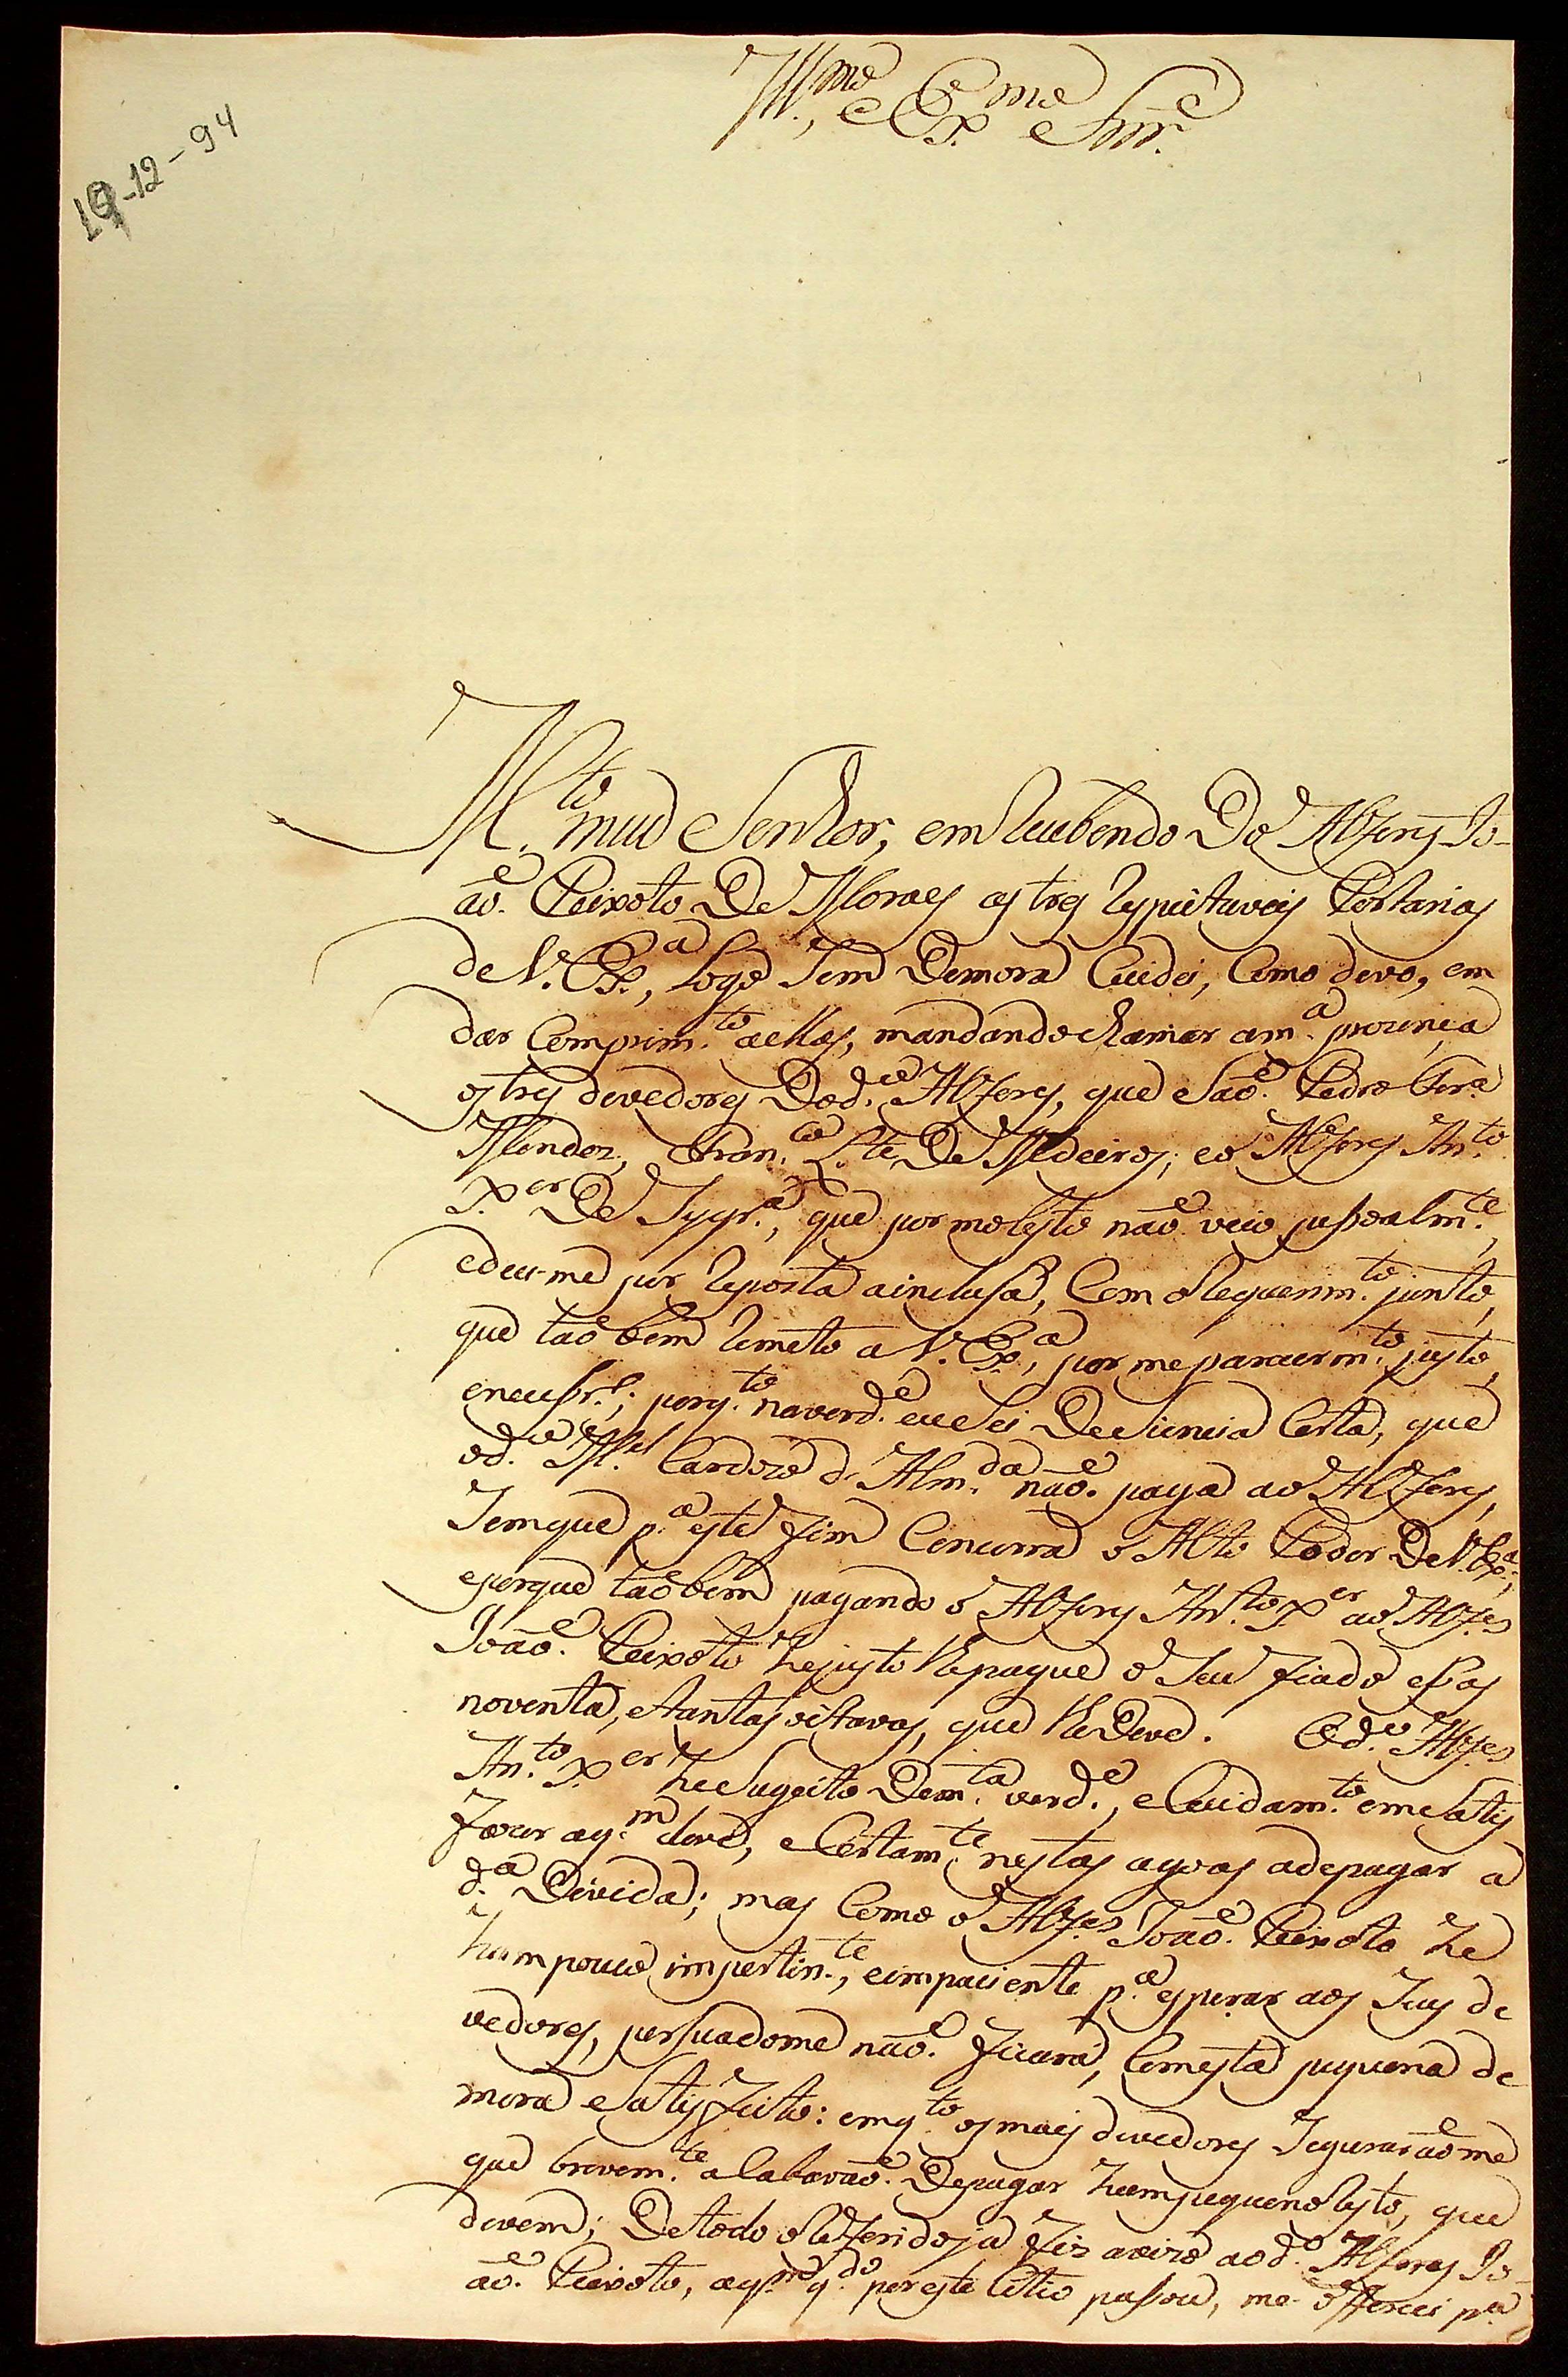 19-12-94
Ill.mo, e Ex.mo Snr.
M.to meu Senhor, em recebendo Do Alferes Jo-
aõ. Peixoto De Moraes as tres respeitaveis Portarias
de V. Ex.a, logo sem Demora Cuidei, Como devo, em
dar Comprim.to aellas, mandando chamar am.a prezença
os tres devedores Dod.o Alferes, que Saõ. Pedro Ferª
Mendez, Fran.co L.te De Medeiros; eo Alferes An.to
X.er De Syqr.a, que por molesto naõ veio pessoalm.te,
edeu-me por reposta ainclusa, Com o requerim.to junto,
que taõ bem remeto a V. Ex.a, por meparecer m.to justo,
enecessr.o; porq.to naverd.e eu Sei De Siencia Certa, que
od.o M.el Cardozo d' Alm.da naõ. paga ao Alferes,
Semque p.a este fim Concorra o Alto Poder De V. Ex.a;
eporque taõbem pagando o Alferes An.to X.er ao Alf.es
Joaõ. Peixoto hejusto lhepague o Seu fiado essas
noventa, etantas oitavas, que lheDeve. Od.o Alf.es
An.to X.er he Sugeito Dem.ta verd.e, eCuidam.to em Satis
fazer aq.m deve, eCertam.te nestas agoas adepagar a
d.a Divida; mas Como o Alf.es Joaõ. Peixoto he
hum pouco impertin.te, eimpaciente p.a esperar aos Seus de
vedores, persuadome naõ. ficará, Comesta pequena de
mora Satisfeito: emq.to os mais devedores Seguraraõme
que brevem.te aCabavaõ. Depagar humpequeno resto, que
devem; Detodo o referido ja fiz avizo aod.o Alferes Jo-
aõ. Peixoto, aq.m q.do por este Citio passou, me offereci p.a